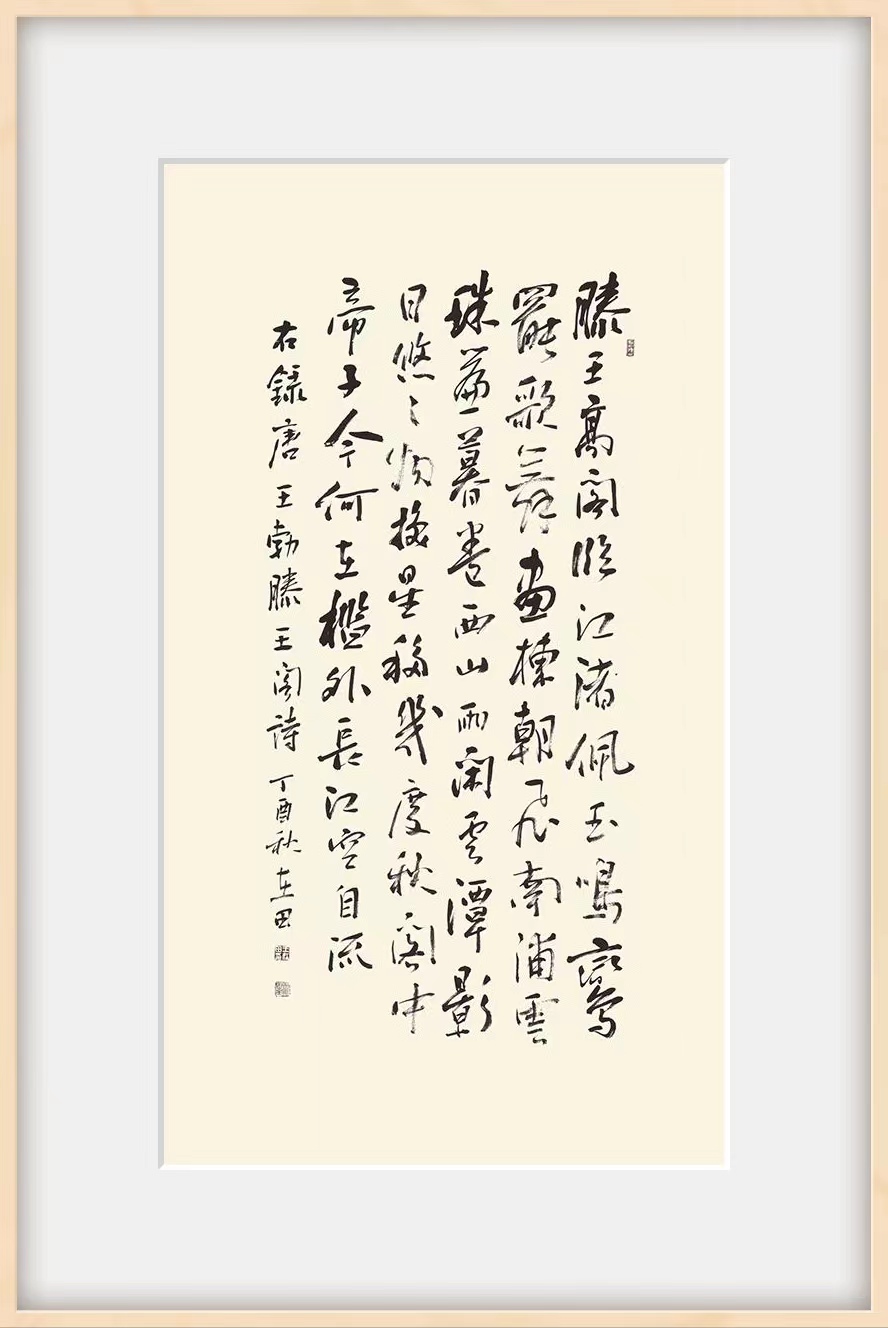 滕王高閣臨江渚佩玉鳴鸞
罷歌舞畫棟朝飛南浦雲
珠簾暮卷西山雨閑雲潭影
日悠々物換星移幾度秋閣中
帝子今何在檻外長江空自流
右録唐王勃滕王閣詩丁酉秋在田